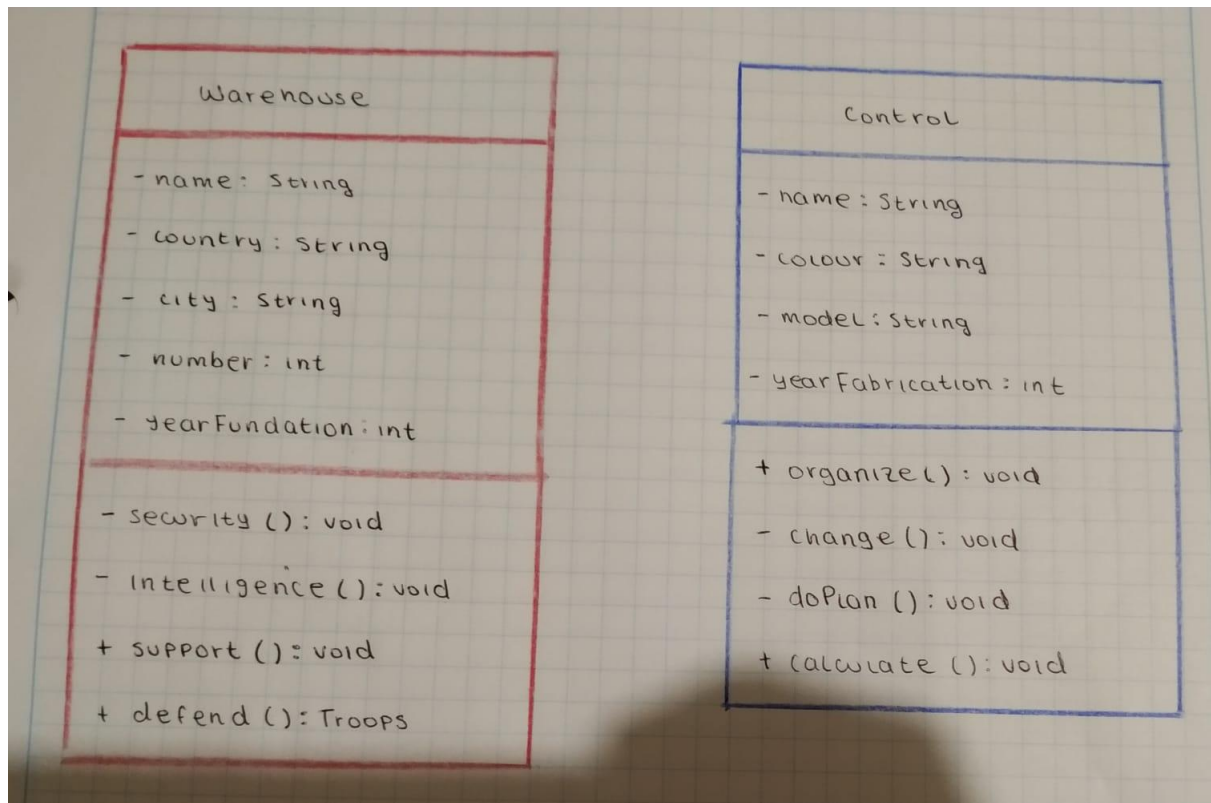 Warehouse
- name: String
- country: String
- city: String
- number: int
- yearFundation: int
- security (): void
- intelligence (): void
+ support (): void
+ defend (): Troops
Control
- name: String
- colour: String
- model: String
- yearFabrication: int
+ organize (): void
- change (): void
- doPlan (): void
+ calculate (): void